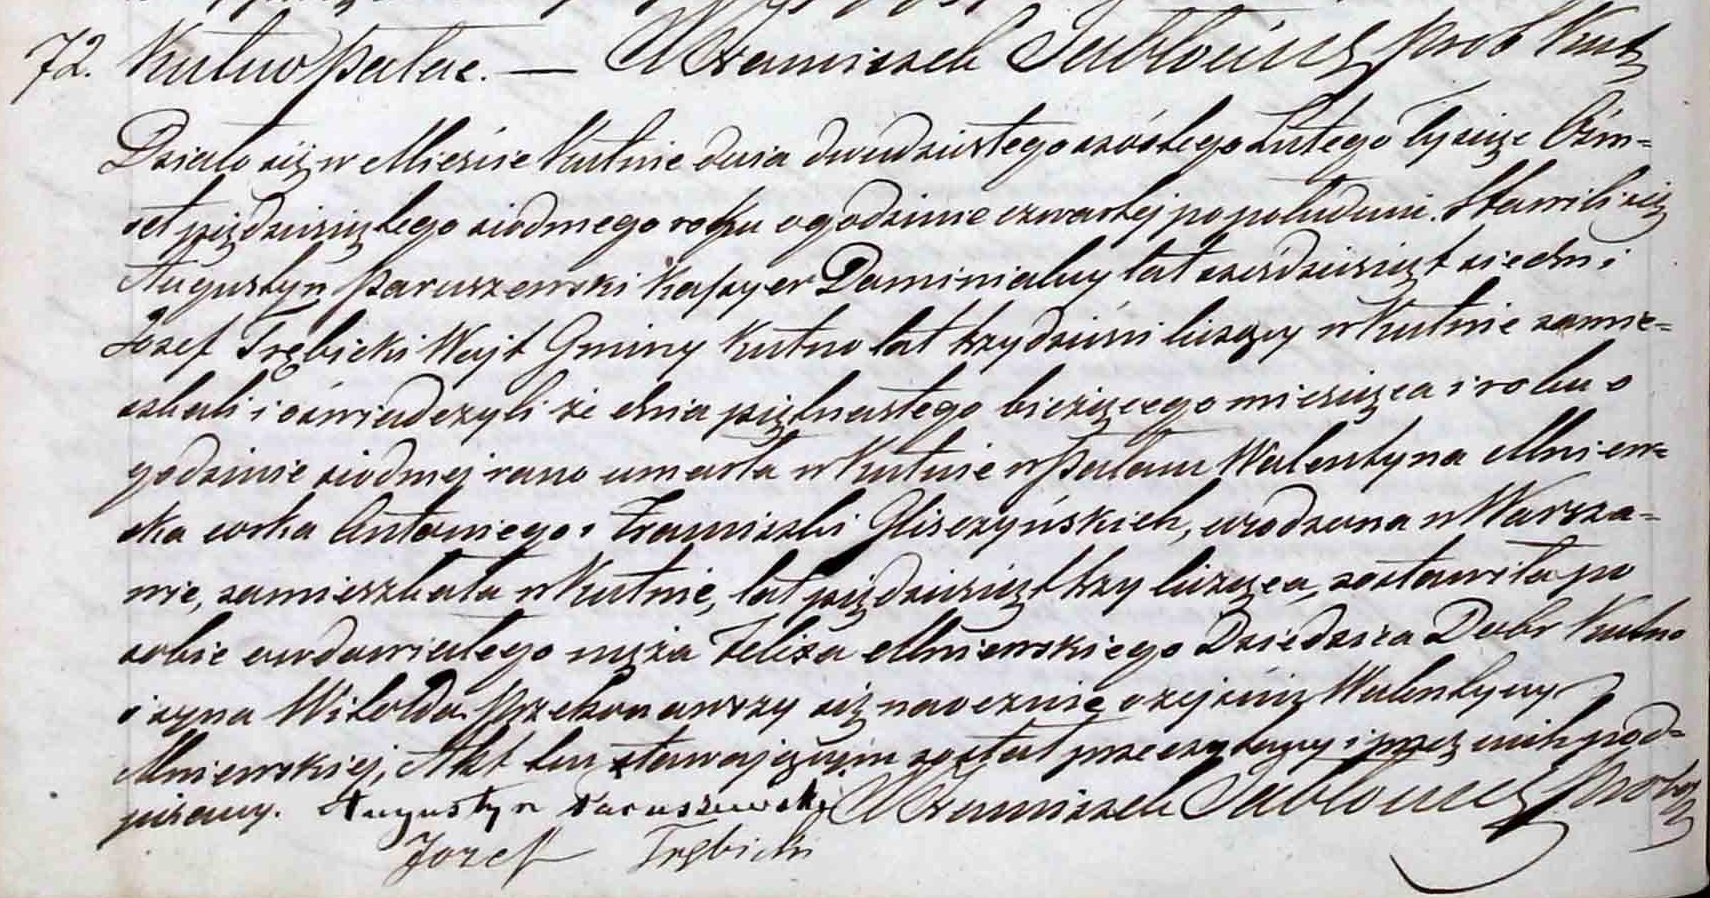 72. Kutno Pałac. — X Franciszek Jabłoński Prob Kut
Działo się w Mieście Kutnie dnia dwudziestego szóstego Lutego tysiąc Ośm=
set pięćdziesiątego siódmego roku o godzinie czwartej po południu. Stawili się
Augustyn Paruszewski Kassyer Dominialny lat sześćdziesiąt siedm i
Jozef Trębicki Wójt Gminy Kutno lat trzydzieści liczący w Kutnie zamie=
szkali i oświadczyli że dnia piętnastego bieżącego miesiąca i roku o
godzinie siódmej rano umarła w Kutnie w Pałacu Walentyna Mniew=
ska corka Antoniego i Franciszki Gliszczyńskich, urodzona w Warsza=
wie, zamieszkała w Kutnie, lat pięćdziesiąt trzy licząca, zostawiła po
sobie owdowiałego męża Felixa Mniewskiego Dziedzica Dobr Kutno
i syna Witolda. Przekonawszy się naocznie o zejściu Walentyny
Mniewskiej, Akt ten stawającym został przeczytany i przez nich pod=
pisany. Augustyn Paruszewski X Franciszek Jabłoński Prob
Jozef Trębicki